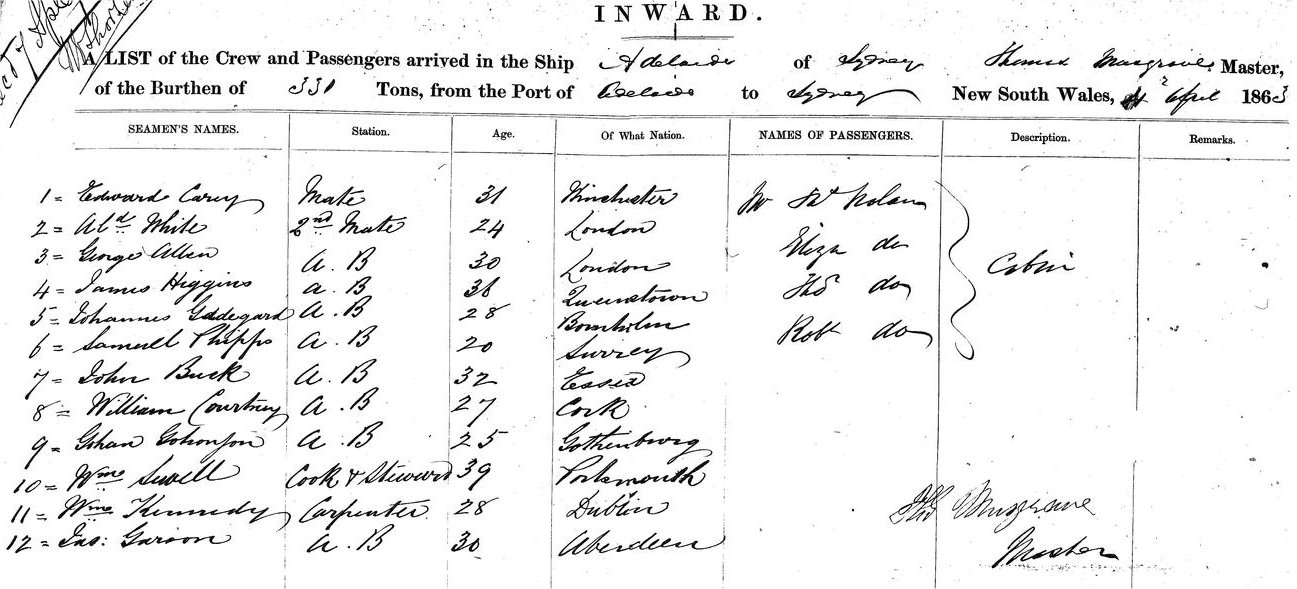 INWARD.
A LIST of the Crew and Passengers arrived in the Ship Adelaide of Sydney Thomas Musgrave Master,
of the Burthen of 330 Tons, from the Port of Adelaide to Sydney New South Wales, April 1863
SEAMEN'S NAMES. Station. Age. Of What Nation. NAMES OF PASSENGERS. Description. Remarks.
1 = Edward Carey Mate 31 Winchester Mr Nolan
2 = Alxd White 2nd Mate 24 London Eliza do
3 = George Allen A.B 30 London Cabin
4 = James Higgins A.B Queenstown Thos do
5 = Johannes A.B 28 Bornholm
6 = Samuell Phipps A.B 20 Surrey Robt do
7 = John Buck A.B 32 Essex
8 = William Courtney A.B 27 Cork
9 = A.B 25 Gothenburg
10 = Wm Sewell Cook & Steward 39 Portsmouth
11 = Wm Kennedy Carpenter 28 Dublin
Thos Musgrave
12 = Jas: A.B 30 Aberdeen
Master